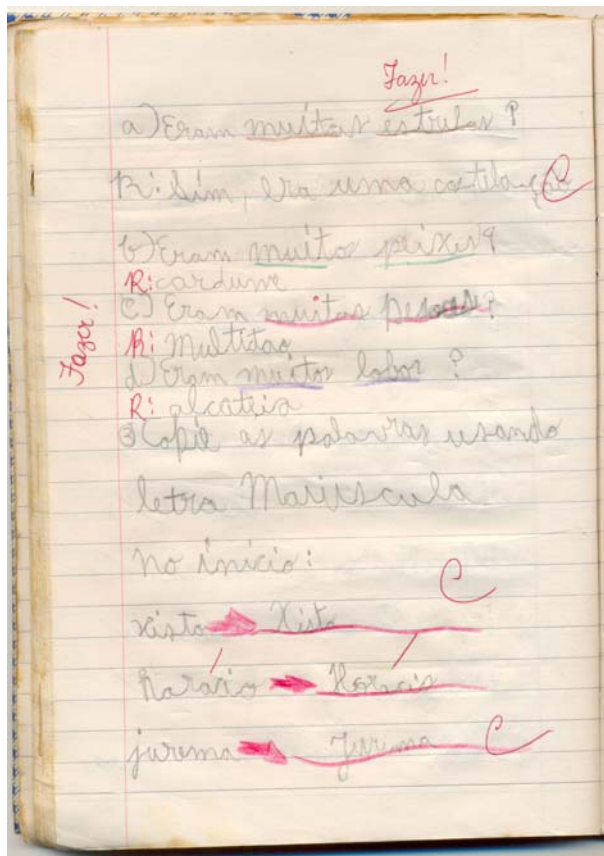 Fazer!
a) Eram muitas estrelas?
R: Sim, era uma costelação C
b) Eram muitos peixes?
R: cardume
c) Eram muitas pessoas?
Fazer!
R: Multitao
d) Eram muitos lobos?
R: alcateia
3) Copie as palavras usando
letra Maiúscula
no início:
C
xisto Xisto
horácio Horácio
jurema Jurema C